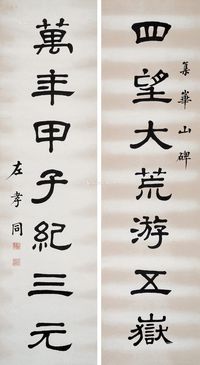 四望大荒游五嶽
集華山碑
萬年甲子紀三元
左孝同